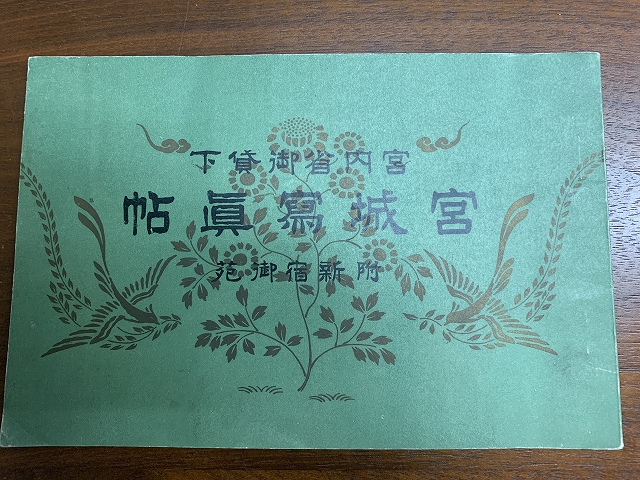 宮内省御貸下
宮城寫眞帖
附新宿御苑